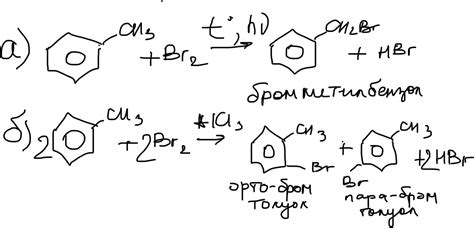 а) CH₃ + Br₂ t°, hν → CH₂Br + HBr
бромметилбензол
б) 2 CH₃ + 2Br₂ AlCl₃ → CH₃ Br + CH₃ Br + 2HBr
орто-бром толуол
пара-бром толуол